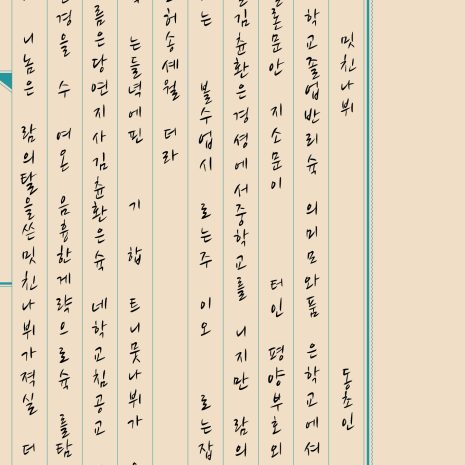 밋친나뷔 동초인
학교졸업반리슉 의미모와품 은학교에셔
론문안 지소문이 터인 평양부호외
김츈환은경셩에서중학교를 니지만 람의
는 불수업시 로는주 이오 로는잡
허송셰월 더라
는들녁에핀 기 합 트니뭇나뷔가
름은당연지사김츈환은슉 녜학교침공교
경을 수 여온 음흉한게략으로슉 를탐
니놈은 람의탈을쓴밋친나뷔가젹실 더